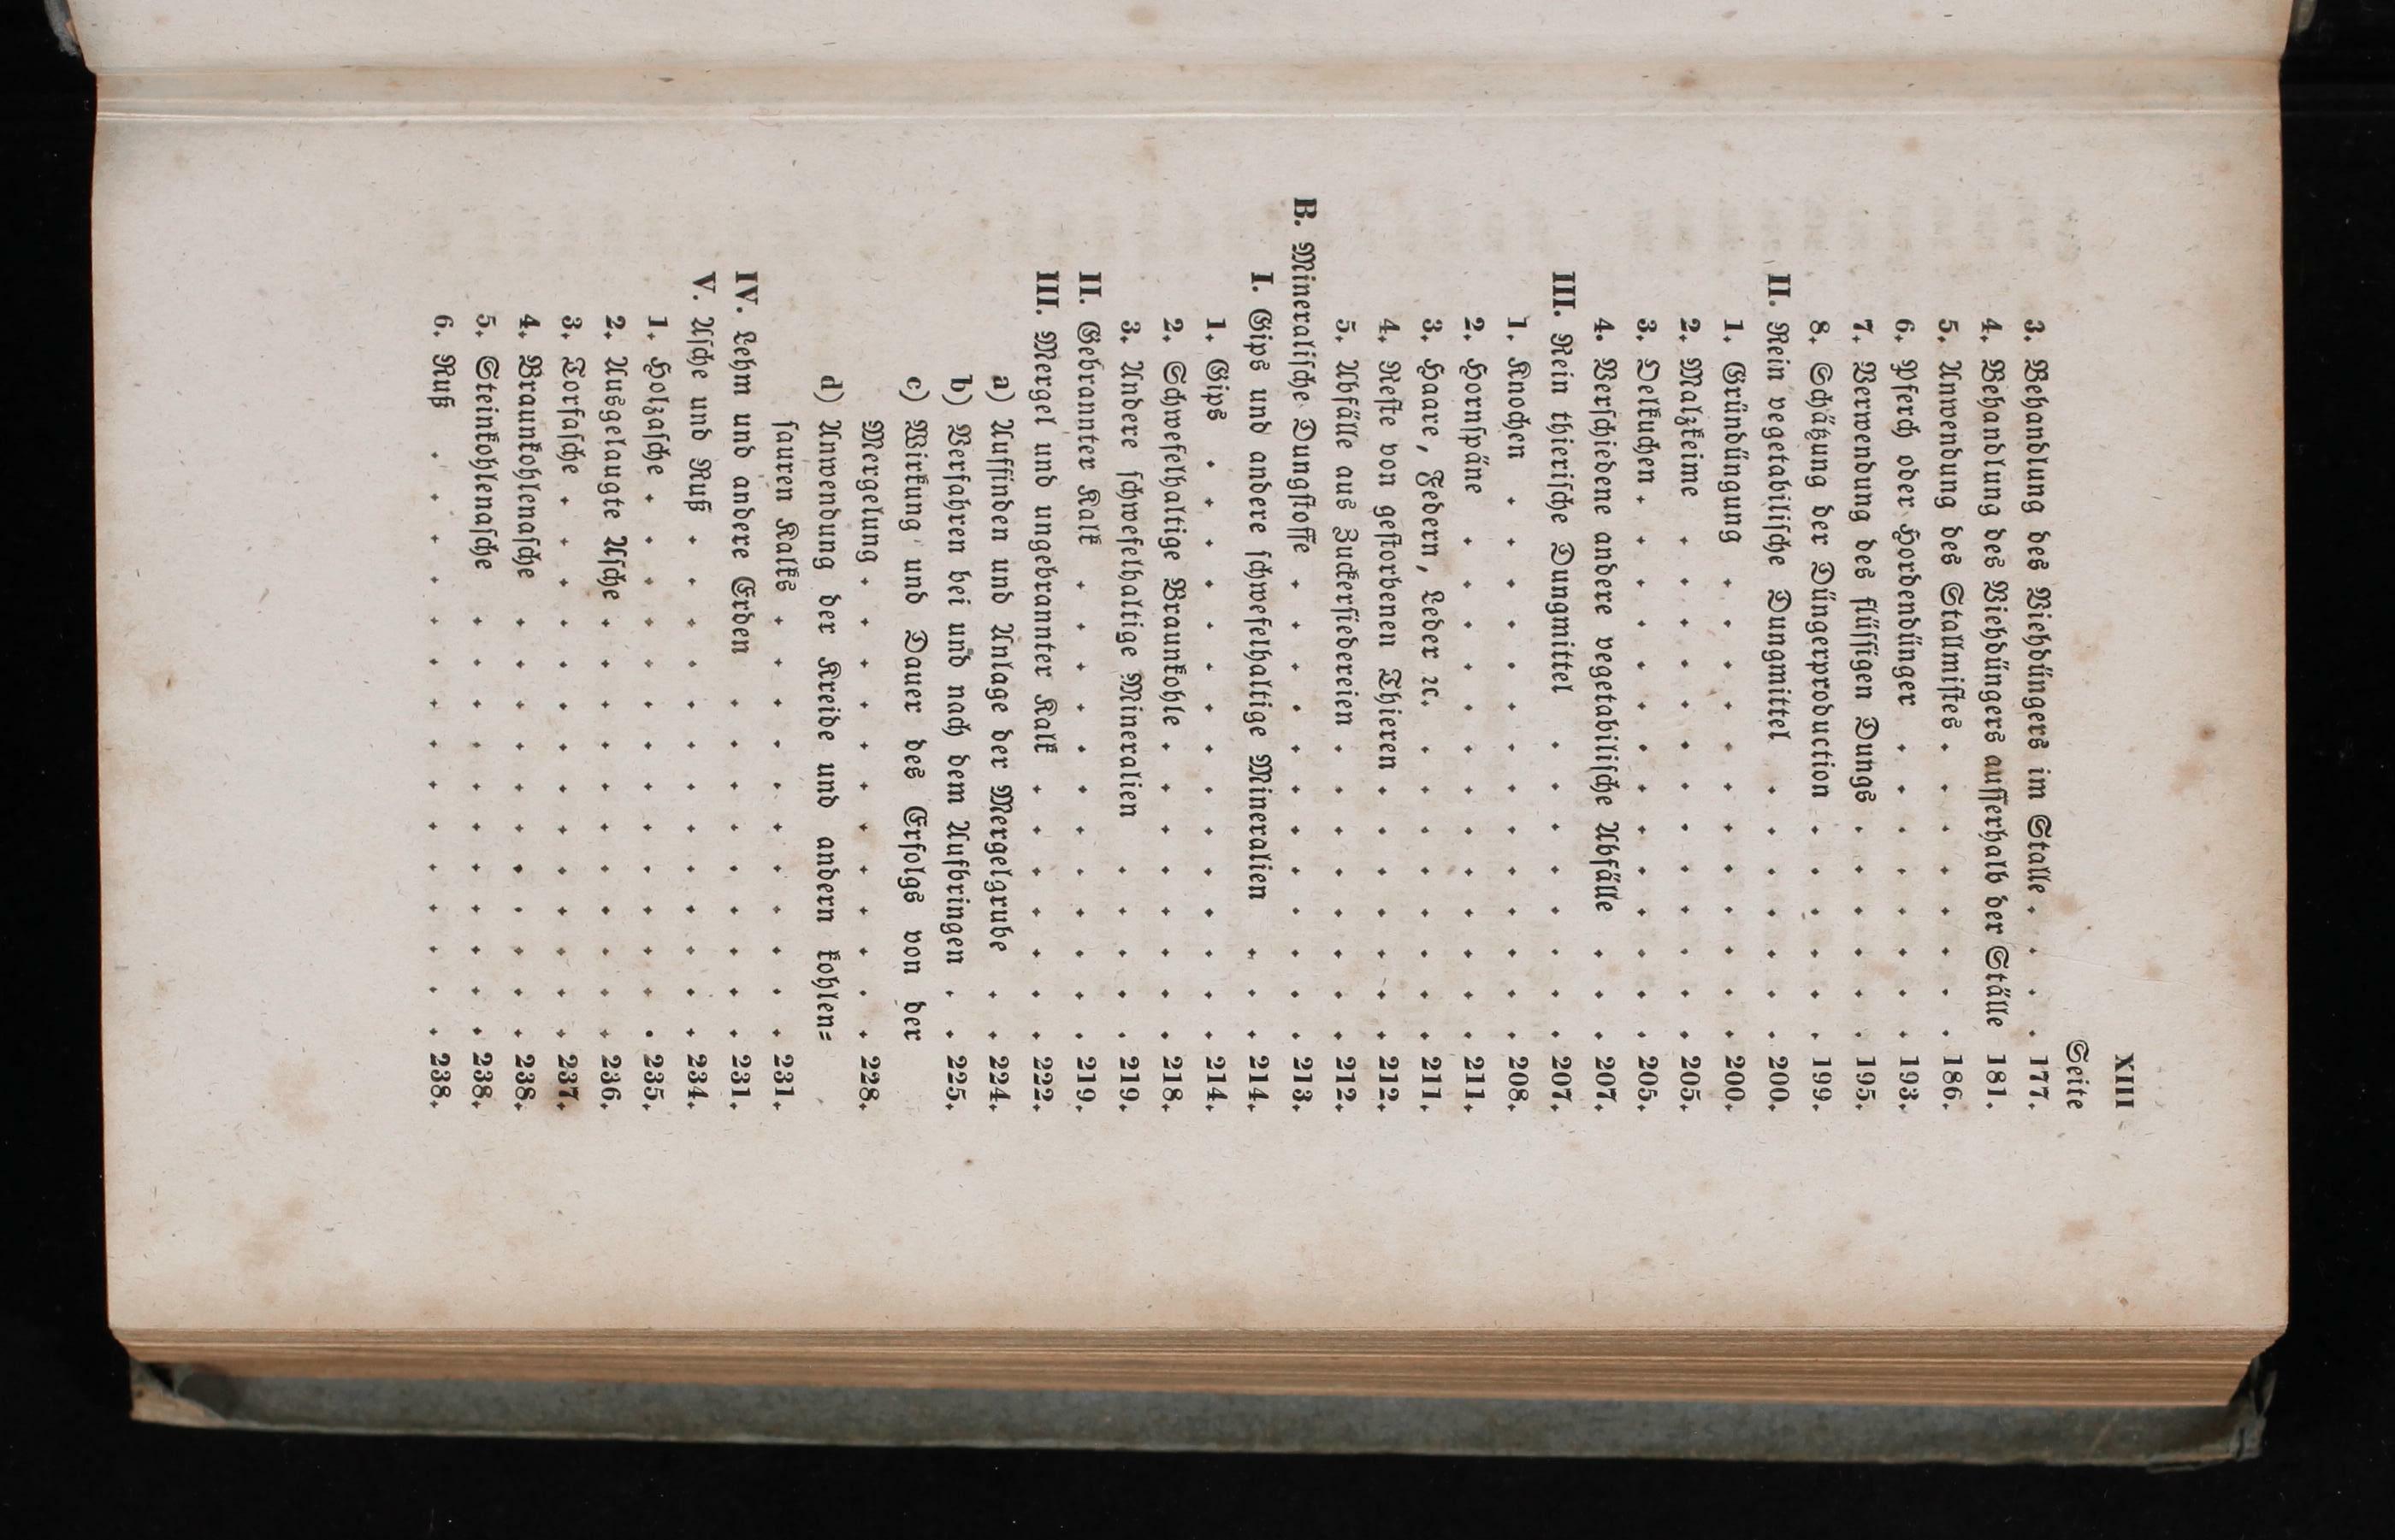 XIII
Seite
3. Behandlung des Viehdüngers im Stalle . . . . 177.
4. Behandlung des Viehdüngers ausserhalb der Ställe 181.
5. Anwendung des Stallmistes . . . . . . . . 186.
6. Pferch oder Hordendünger . . . . . . . . 193.
7. Verwendung des flüssigen Dungs . . . . . . 195.
8. Schätzung der Düngerproduction . . . . . . 199.
II. Rein vegetabilische Dungmittel . . . . . . . 200.
1. Gründüngung . . . . . . . . . . . . 200.
2. Malzkeime . . . . . . . . . . . . . 205.
3. Oelkuchen . . . . . . . . . . . . . . 205.
4. Verschiedene andere vegetabilische Abfälle . . . 207.
III. Rein thierische Dungmittel . . . . . . . . 207.
1. Knochen . . . . . . . . . . . . . . 208.
2. Hornspäne . . . . . . . . . . . . . 211.
3. Haare, Federn, Leder ꝛc. . . . . . . . . 211.
4. Reste von gestorbenen Thieren . . . . . . . 212.
5. Abfälle aus Zuckersiedereien . . . . . . . . 212.
B. Mineralische Dungstoffe . . . . . . . . . . . . 213.
I. Gips und andere schwefelhaltige Mineralien . . . 214.
1. Gips . . . . . . . . . . . . . . . 214.
2. Schwefelhaltige Braunkohle . . . . . . . . 218.
3. Andere schwefelhaltige Mineralien . . . . . 219.
II. Gebrannter Kalk . . . . . . . . . . . . 219.
III. Mergel und ungebrannter Kalk . . . . . . . 222.
a) Auffinden und Anlage der Mergelgrube . . 224.
b) Verfahren bei und nach dem Aufbringen . . 225.
c) Wirkung und Dauer des Erfolgs von der
Mergelung . . . . . . . . . . . . 228.
d) Anwendung der Kreide und andern kohlen=
sauren Kalks . . . . . . . . . . . 231.
IV. Lehm und andere Erden . . . . . . . . . 231.
V. Asche und Ruß . . . . . . . . . . . . . 234.
1. Holzasche . . . . . . . . . . . . . . 235.
2. Ausgelaugte Asche . . . . . . . . . . . 236.
3. Torfasche . . . . . . . . . . . . . . 237.
4. Braunkohlenasche . . . . . . . . . . . 238.
5. Steinkohlenasche . . . . . . . . . . . 238.
6. Ruß . . . . . . . . . . . . . . . 238.